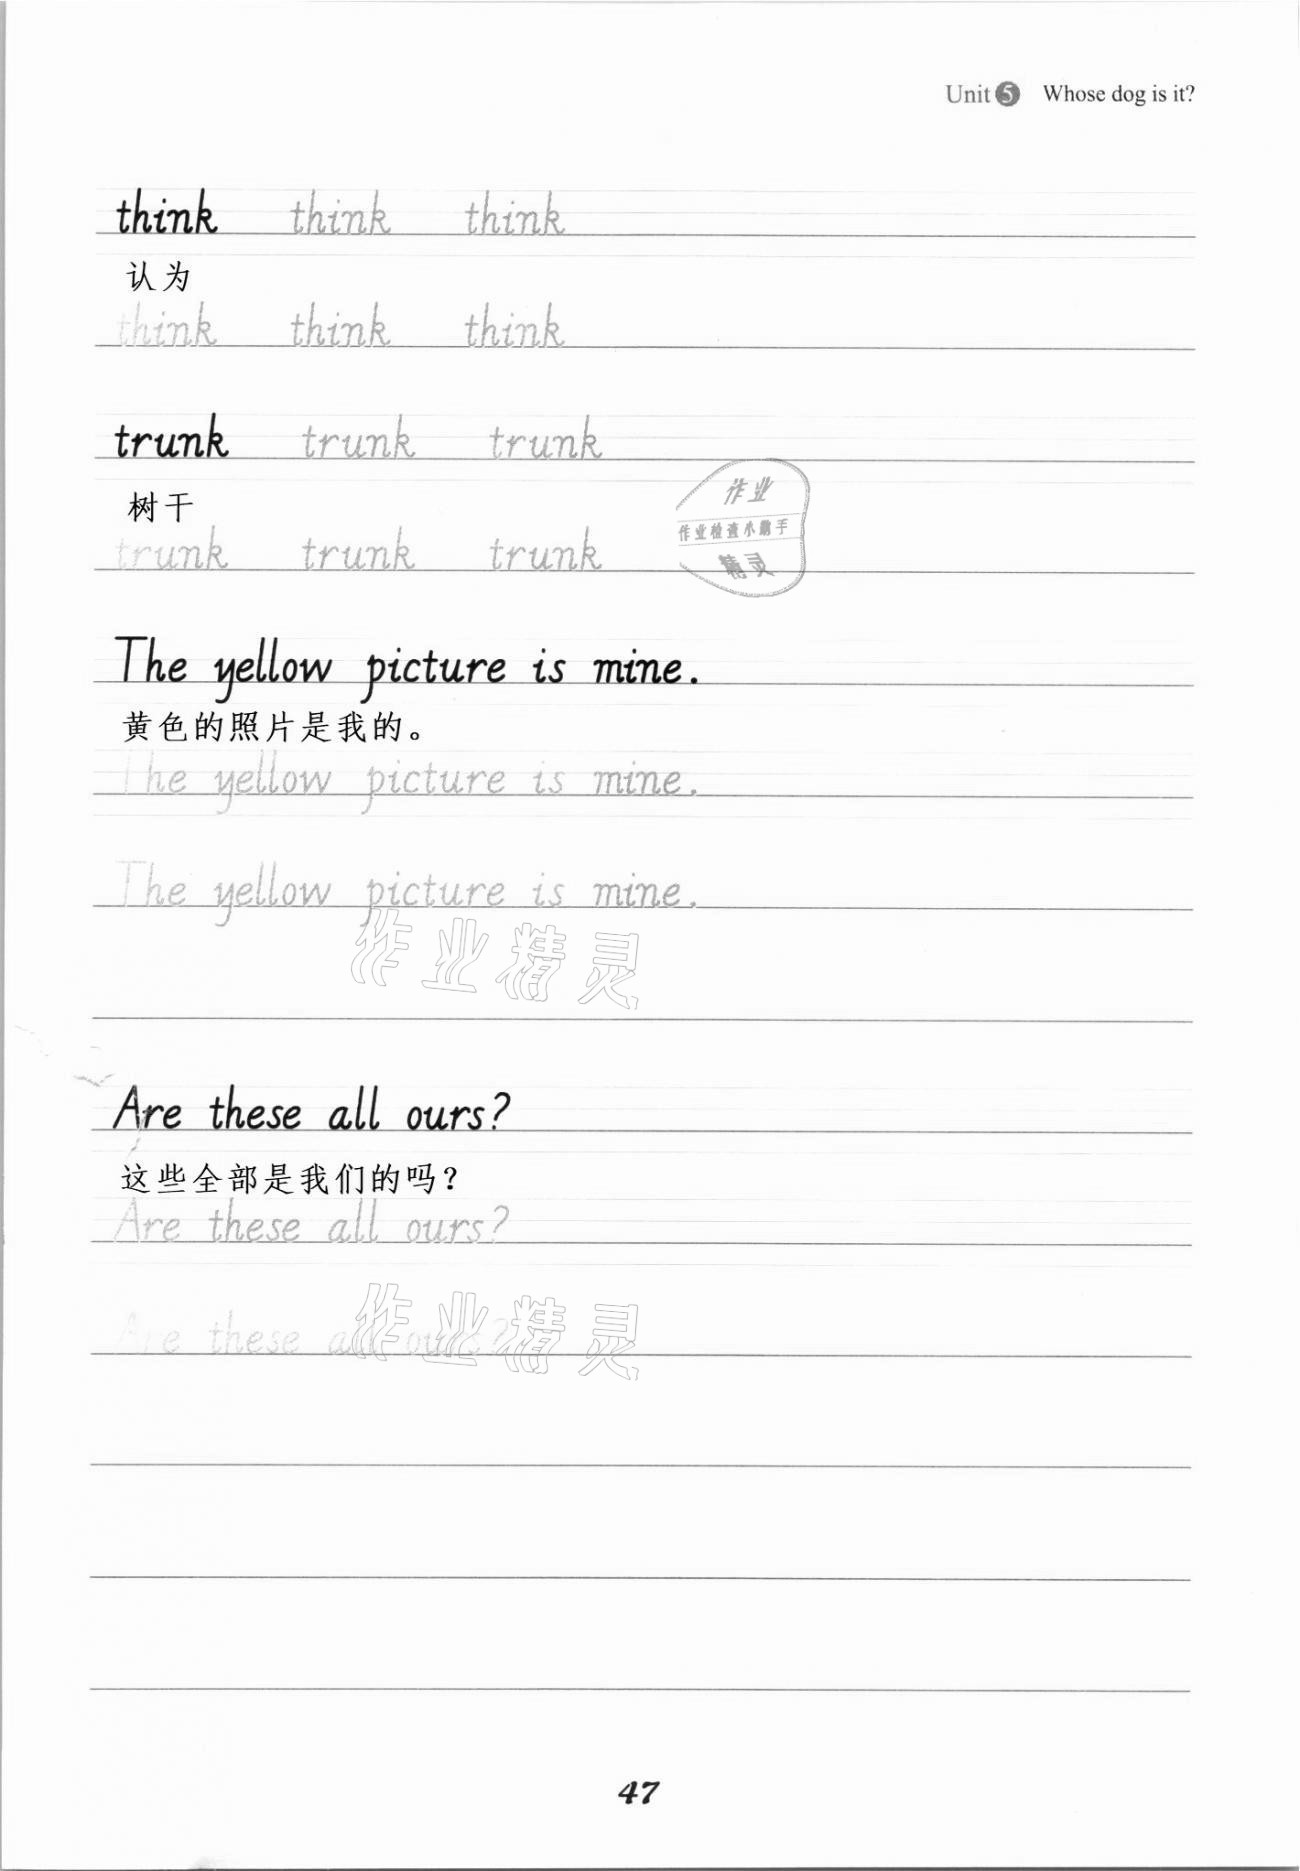 Unit 5 Whose dog is it?
think think think
认为
think think think
trunk trunk trunk
树干
作业
作业检查小助手
精灵
trunk trunk trunk
The yellow picture is mine.
黄色的照片是我的。
The yellow picture is mine.
The yellow picture is mine.
作业精灵
Are these all ours?
这些全部是我们的吗？
Are these all ours?
Are these all ours?
作业精灵
47